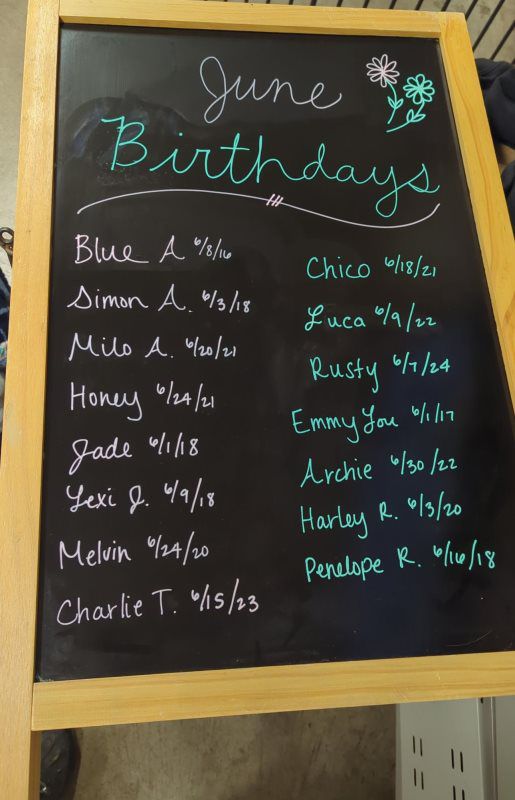 June
Birthdays
Blue A 6/8/16
Simon A. 6/3/18
Milo A. 6/20/21
Honey 6/24/21
Jade 6/1/18
Lexi J. 6/9/18
Melvin 6/24/20
Charlie T. 6/15/23
Chico 6/18/21
Luca 6/9/22
Rusty 6/7/24
Emmy Lou 6/1/17
Archie 6/30/22
Harley R. 6/3/20
Penelope R. 6/16/18